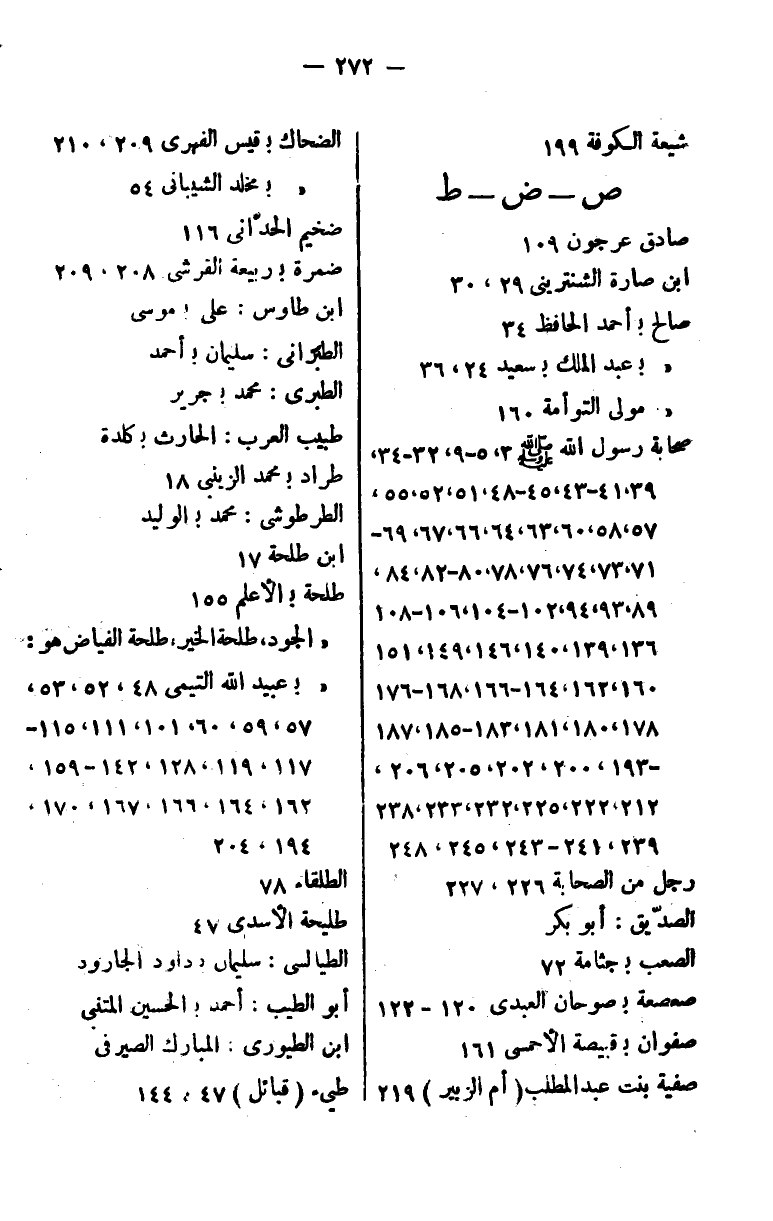 — ٢٧٢ —
شيعة الكوفة ١٩٩
ص — ض — ط
صادق عرجون ١٠٩
ابن صارة الشنترينى ٢٩ ، ٣٠
صالح ب أحمد الحافظ ٣٤
» ب عبد الملك ب سعيد ٢٤ ، ٣٦
» مولى التوأمة ١٦٠
صحابة رسول الله ﷺ ٣،٥-٩،٣٢-٣٤،
٣٩،٤١-٤٣،٤٥-٤٨،٥١،٥٢،٥٥،
٥٧،٥٨،٦٠،٦٣،٦٤،٦٦،٦٧،٦٩-
٧١،٧٣،٧٤،٧٦،٧٨،٨٠-٨٢،٨٤،
٨٩،٩٣،٩٤،١٠٢-١٠٤،١٠٦-١٠٨
١٣٦،١٣٩،١٤٠،١٤٦،١٤٩،١٥١
١٦٠،١٦٢،١٦٤-١٦٦،١٦٨-١٧٦
١٧٨،١٨٠،١٨١،١٨٣-١٨٥،١٨٧
-١٩٣،٢٠٠،٢٠٢،٢٠٥،٢٠٦،
٢١٢،٢٢٢،٢٢٥،٢٣٢،٢٣٣،٢٣٨
٢٣٩،٢٤١-٢٤٣،٢٤٥،٢٤٨
رجل من الصحابة ٢٢٦ ، ٢٢٧
الصدّيق : أبو بكر
الصعب ب جثامة ٧٢
صعصعة ب صوحان العبدى ١٢٠ - ١٢٢
صفوان ب قبيصة الأحمسى ١٦١
صفية بنت عبد المطلب ( أم الزبير ) ٢١٩
الضحاك ب قيس الفهرى ٢٠٩ ، ٢١٠
» ب مخلد الشيبانى ٥٤
ضخيم الحدّانى ١١٦
ضمرة ب ربيعة القرشى ٢٠٨ ، ٢٠٩
ابن طاوس : على ب موسى
الطبرانى : سليمان ب أحمد
الطبرى : محمد ب جرير
طبيب العرب : الحارث ب كلدة
طراد ب محمد الزينبى ١٨
الطرطوشى : محمد ب الوليد
ابن طلحة ١٧
طلحة ب الأعلم ١٥٥
» الجود، طلحة الخير، طلحة الفياض هو :
» ب عبيد الله التيمى ٤٨ ، ٥٢ ، ٥٣ ،
٥٧ ، ٥٩ ، ٦٠ ، ١٠١ ، ١١١ ، ١١٥-
١١٧ ، ١١٩ ، ١٢٨ ، ١٤٢ - ١٥٩ ،
١٦٢ ، ١٦٤ ، ١٦٦ ، ١٦٧ ، ١٧٠ ،
١٩٤ ، ٢٠٤
الطلقاء ٧٨
طليحة الأسدى ٤٧
الطيالسى : سليمان ب داود الجارود
أبو الطيب : أحمد ب الحسين المتنبى
ابن الطيورى : المبارك الصيرفى
طيىء ( قبائل ) ٤٧ ، ١٤٤